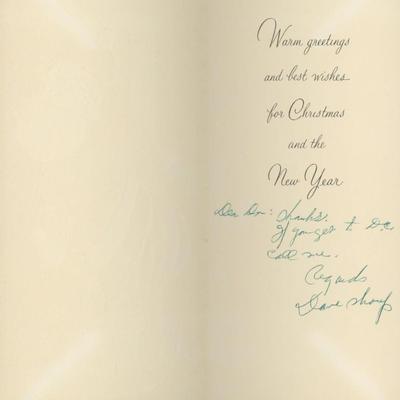 Warm greetings
and best wishes
for Christmas
and the
New Year
Dear Don: Thanks.
If you get to D.C.
call me.
Regards
Dave Shoup